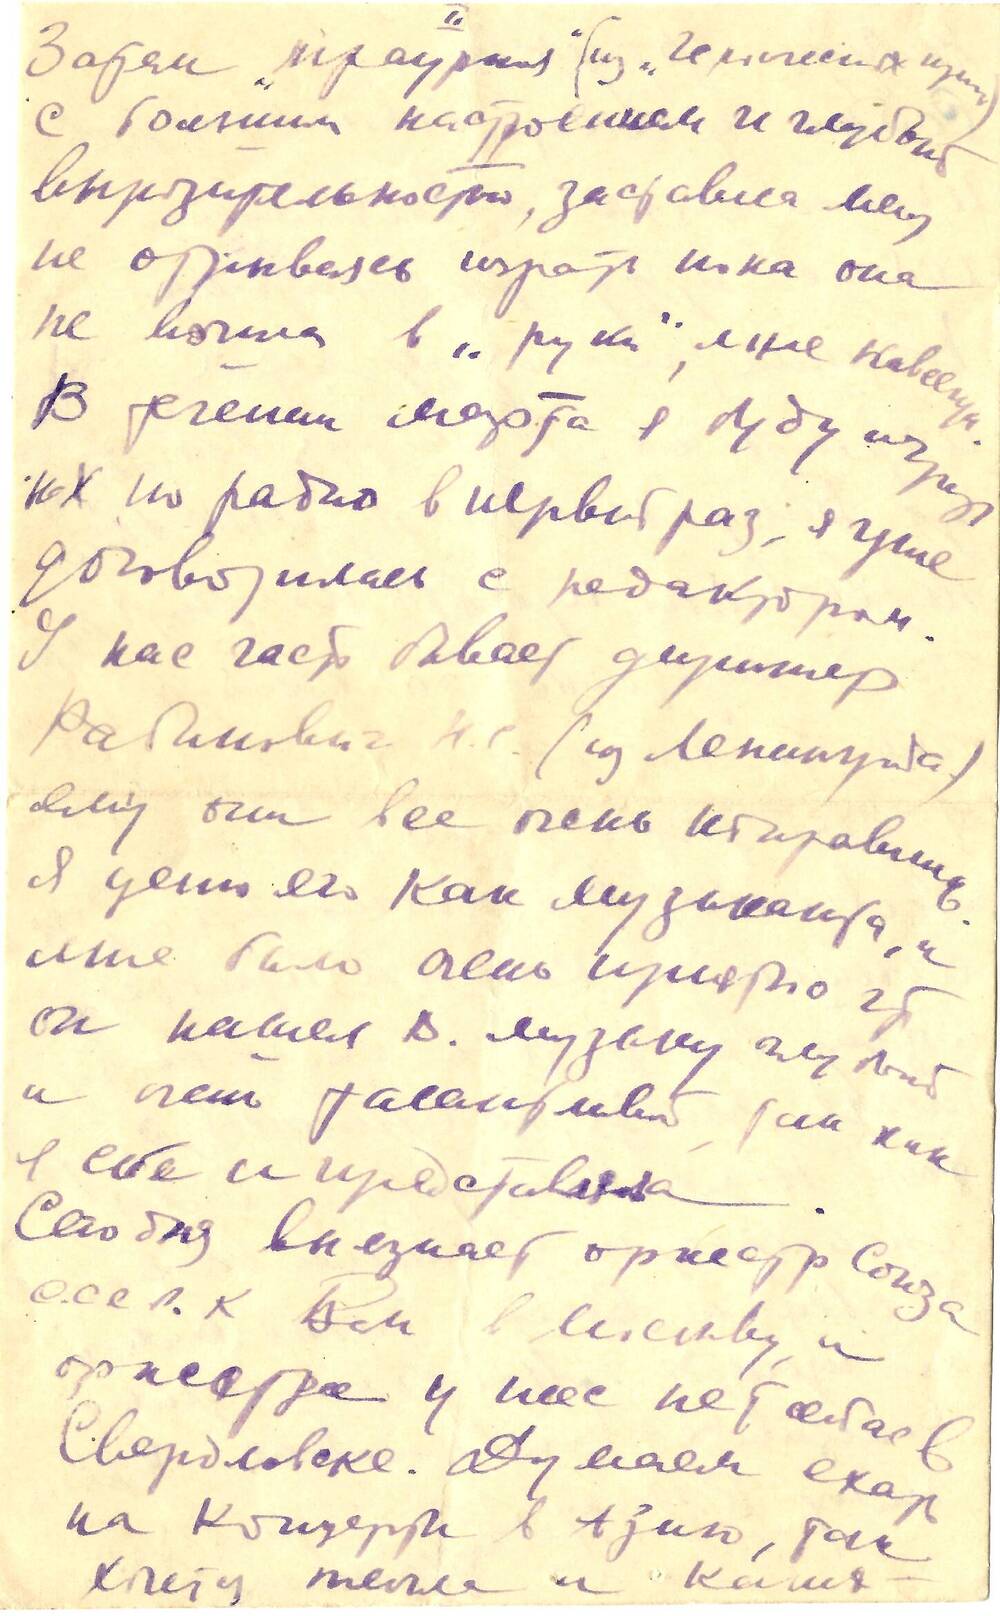 II
Затем „траурная“ (из „Героических
с большим настроением и глубокой
выразительностью, заставила меня
не отрываясь играть пока она
не вошла в „руки“, мне кажется.
В течении марта я буду играть
их по радио в первый раз, я уже
договорилась с редактором.
У нас часто бывает дирижер
Рабинович Н.С. (из Ленинграда)
ему они все очень понравились.
Я ценю его как музыканта, и
мне было очень приятно что
он нашел В. музыку глубокой
и очень талантливой, так как
я себе и представляла.
Сегодня выезжает оркестр Союза
к Вам в Москву, и
оркестра у нас нет сейчас в
Свердловске. Думаем ехать
на концерты в Азию, так
хочется тепла и